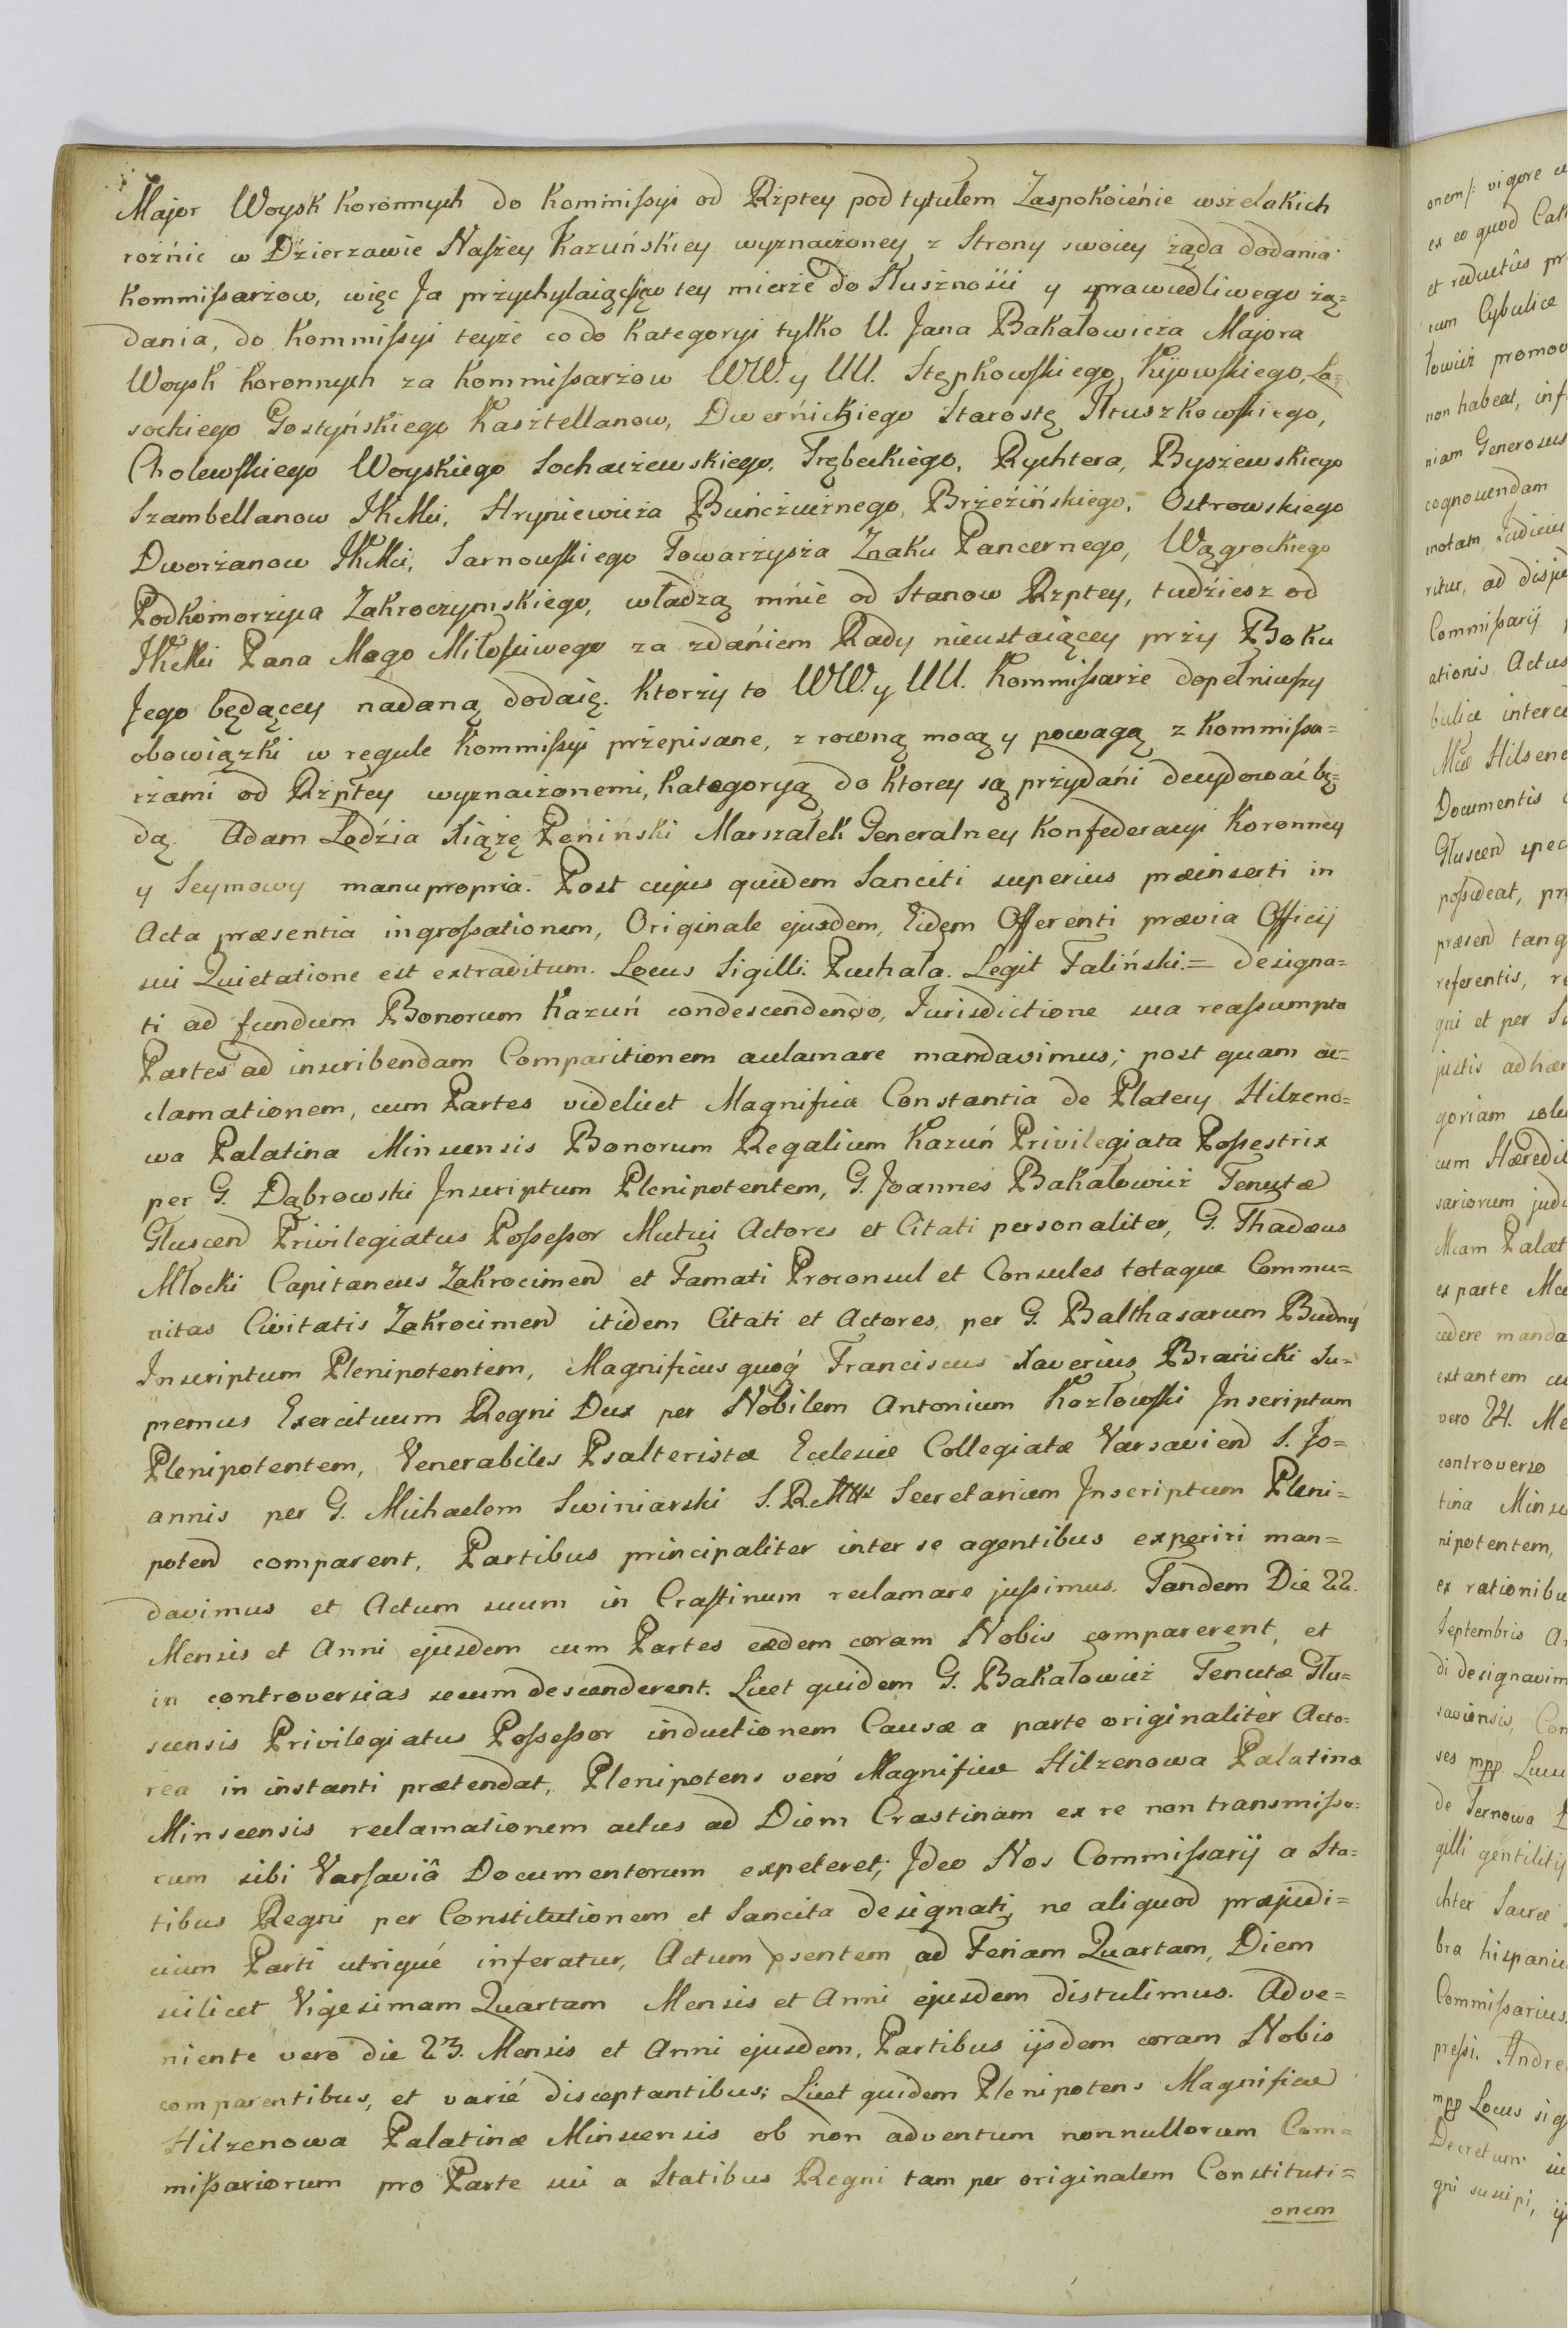 Major Woysk Koronnych do Kommissyi od Rzptey pod tytułem Zaspokoienie wszelakich
rożnic w Dzierzawie Naszey Kazuńskiey wyznaczoney z Strony swoiey żąda dodania
Kommissarzow, więc Ja przychylaiąc się w tey mierze do Słusznosci y sprawiedliwego żą=
dania, do Kommissyi teyże co do Kategoryi tylko U. Jana Bakałowicza Majora
Woysk Koronnych za Kommissarzow WW. y UU. Stępkowskiego Kijowskiego, La=
sockiego Gostyńskiego Kasztellanow, Dwernickiego Starostę Kruszkowskiego,
Cholewskiego Woyskiego Sochaczewskiego, Trębeckiego, Rychtera, Byszewskiego
Szambellanow JKMci, Hryniewicza Bunczucznego, Brzezińskiego, Ostrowskiego
Dworzanow JKMci, Sarnowskiego Towarzysza Znaku Pancernego, Wągrockiego
Podkomorzyca Zakroczymskiego, władzą mnie od Stanow Rzptey, tudziesz od
JKMci Pana Mego Miłosciwego za zdaniem Rady nieustaiącey przy Boku
Jego będącey nadaną dodaię. Ktorzy to WW. y UU. Kommissarze dopełniwszy
obowiązki w regule Kommissyi przepisane, z rowną mocą y powagą z Kommissa=
rzami od Rzptey wyznaczonemi, Kategoryą do Ktorey są przydani decydować bę=
dą. Adam Łodzia Xiążę Poniński Marszałek Generalney Konfederacyi Koronney
y Seymowy manu propria. Post cujus quidem Sanciti superius præinserti in
Acta præsentia ingrossationem, Originale ejusdem, Eidem Offerenti prævia Officij
sui Quietatione est extraditum. Locus Sigilli. Puchala. Legit Faliński.= designa=
ti ad fundum Bonorum Kazuń condescendendo, Jurisdictione sua reassumpta
Partes ad inscribendam Comparitionem acclamare mandavimus; post quam ac=
clamationem, cum Partes videlicet Magnifica Constantia de Platery Hilzeno=
wa Palatina Minscensis Bonorum Regalium Kazuń Privilegiata Possestrix
per G. Dąbrowski Inscriptum Plenipotentem, G. Joannes Bakałowicz Tenutæ
Gluscen Privilegiatus Possessor Mutui Actores et Citati personaliter, G. Thadæus
Młocki Capitaneus Zakrocimen et Famati Proconsul et Consules totaque Commu=
nitas Civitatis Zakrocimen itidem Citati et Actores, per G. Balthasarum Budny
Inscriptum Plenipotentem, Magnificus quoq Franciscus Xaverius Branicki Su=
premus Exercituum Regni Dux per Nobilem Antonium Kozłowski Inscriptum
Plenipotentem, Venerabiles Psalteristæ Ecclesiæ Collegiatæ Varsavien S. Jo=
annis per G. Michaelem Swiniarski S. R. Mttis Secretarium Inscriptum Pleni=
poten comparent, Partibus principaliter inter se agentibus experiri man=
davimus et Actum suum in Crastinum reclamare jussimus. Tandem Die 22.
Mensis et Anni ejusdem cum Partes eædem coram Nobis comparerent, et
in controversias secum descenderent. Licet quidem G. Bakałowicz Tenutæ Glu=
scensis Privilegiatus Possessor inductionem Causæ a parte originaliter Acto=
rea in instanti prætendat, Plenipotens veró Magnificæ Hilzenowa Palatinæ
Minscensis reclamationem actus ad Diem Crastinam ex re non transmisso=
rum sibi Varsaviâ Documentorum expeteret; Ideo Nos Commissarij a Sta=
tibus Regni per Constitutionem et Sancita designati, ne aliquod præjudi=
cium Parti utriqué inferatur, Actum psentem ad Feriam Quartam, Diem
scilicet Vigesimam Quartam Mensis et Anni ejusdem distulimus. Adve=
niente vero die 23. Mensis et Anni ejusdem, Partibus ijsdem coram Nobis
comparentibus, et varié disceptantibus; Licet quidem Plenipotens Magnificæ
Hilzenowa Palatinæ Minscensis ob non adventum nonnullorum Com=
missariorum pro Parte sui a Statibus Regni tam per originalem Constituti=
onem